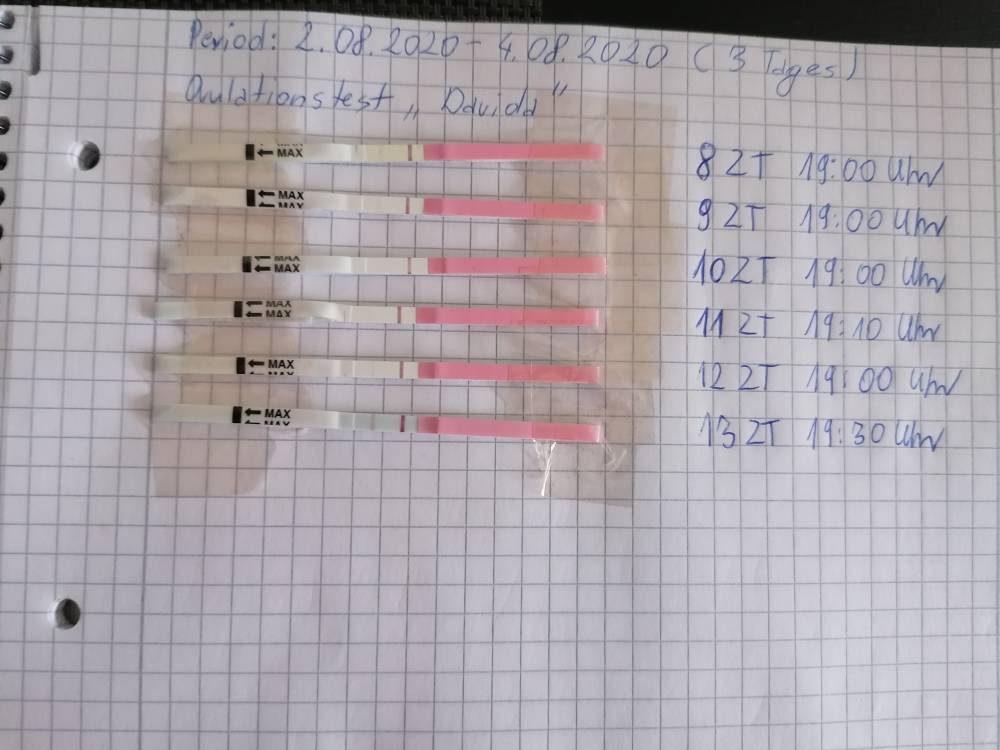 Period: 2.08.2020 - 4.08.2020 (3 Tages)
Ovulationstest „Davida"
MAX 8 ZT 19:00 Uhr
MAX MAX 9 ZT 19:00 Uhr
MAX MAX 10 ZT 19:00 Uhr
MAX MAX 11 ZT 19:10 Uhr
MAX 12 ZT 19:00 Uhr
MAX MAX 13 ZT 19:30 Uhr